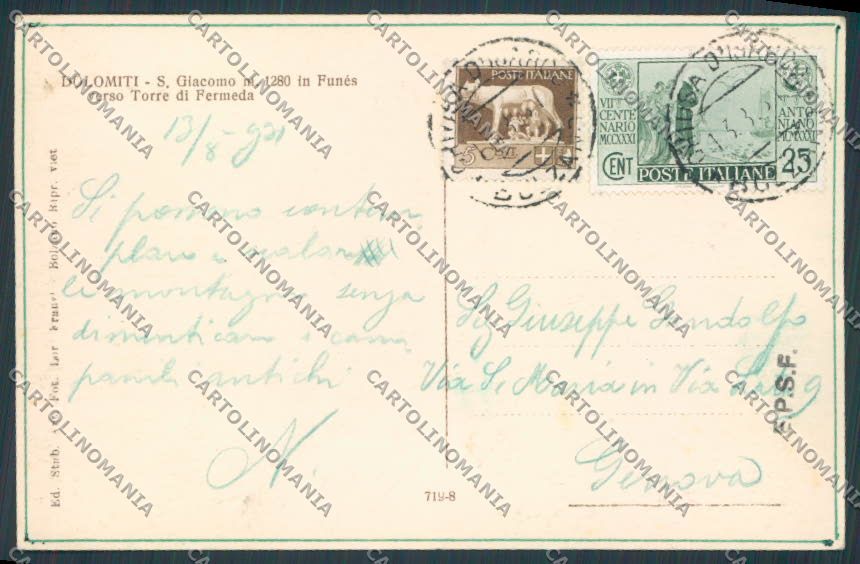 DOLOMITI - S. Giacomo m. 1280 in Funés
verso Torre di Fermeda
13/8-931
Si possono contem
plare e scalare
le montagne senza
dimenticare i cam
panili antichi
N.
POSTE ITALIANE
5 CENT.
VII CENTENARIO MCCXXXI
ANTONIANO MCMXXXI
CENT 25
POSTE ITALIANE
Sig Giuseppe Gandolfo
Via S. Maria in Via 9
Genova
F.P.S.F.
719-8
Ed. Stab. Fot. Lor. Bolzano Ripr. viet.
CARTOLINOMANIA